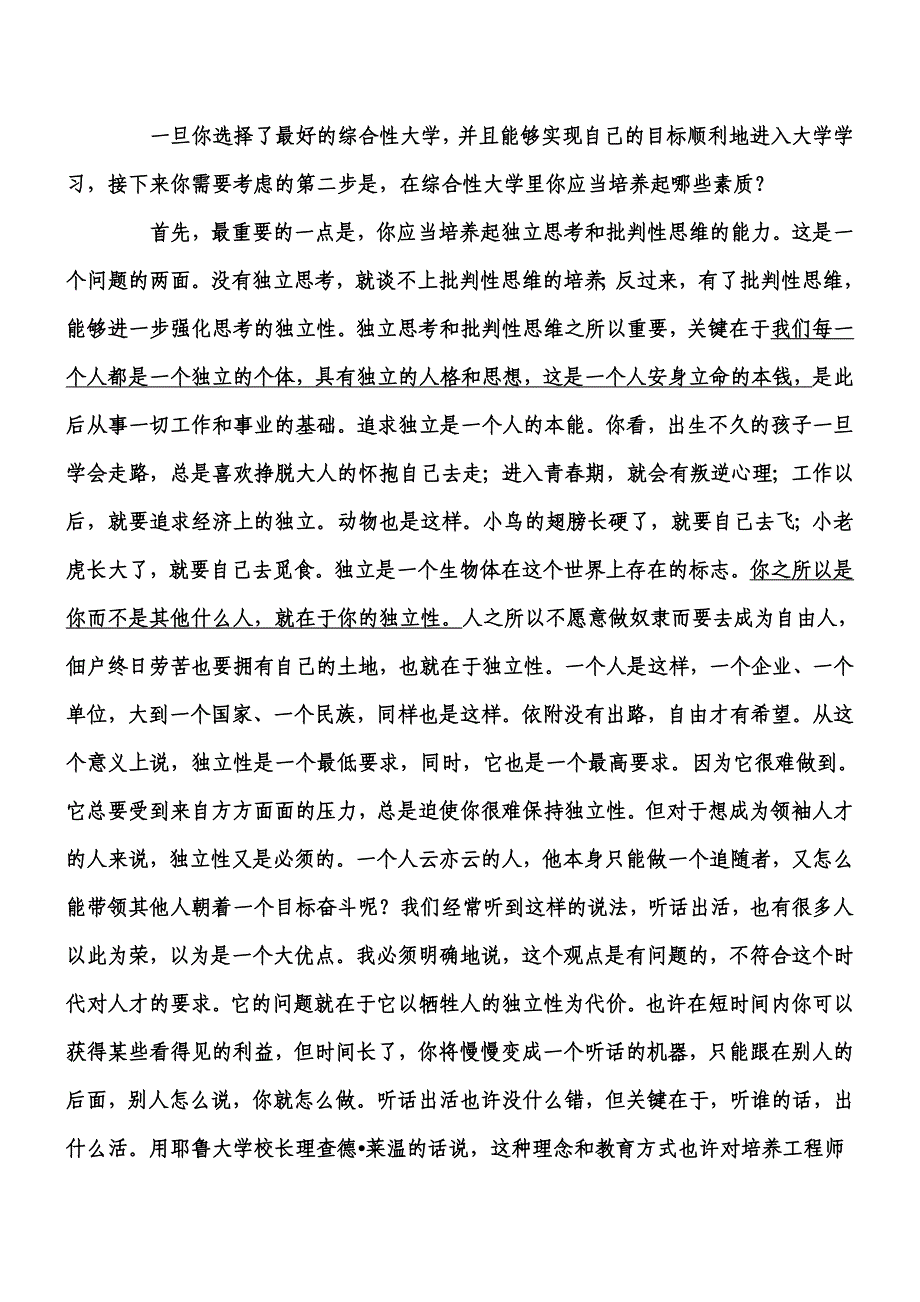 一旦你选择了最好的综合性大学，并且能够实现自己的目标顺利地进入大学学
习，接下来你需要考虑的第二步是，在综合性大学里你应当培养起哪些素质？
首先，最重要的一点是，你应当培养起独立思考和批判性思维的能力。这是一
个问题的两面。没有独立思考，就谈不上批判性思维的培养；反过来，有了批判性思维，
能够进一步强化思考的独立性。独立思考和批判性思维之所以重要，关键在于我们每一
个人都是一个独立的个体，具有独立的人格和思想，这是一个人安身立命的本钱，是此
后从事一切工作和事业的基础。追求独立是一个人的本能。你看，出生不久的孩子一旦
学会走路，总是喜欢挣脱大人的怀抱自己去走；进入青春期，就会有叛逆心理；工作以
后，就要追求经济上的独立。动物也是这样。小鸟的翅膀长硬了，就要自己去飞；小老
虎长大了，就要自己去觅食。独立是一个生物体在这个世界上存在的标志。你之所以是
你而不是其他什么人，就在于你的独立性。人之所以不愿意做奴隶而要去成为自由人，
佃户终日劳苦也要拥有自己的土地，也就在于独立性。一个人是这样，一个企业、一个
单位，大到一个国家、一个民族，同样也是这样。依附没有出路，自由才有希望。从这
个意义上说，独立性是一个最低要求，同时，它也是一个最高要求。因为它很难做到。
它总要受到来自方方面面的压力，总是迫使你很难保持独立性。但对于想成为领袖人才
的人来说，独立性又是必须的。一个人云亦云的人，他本身只能做一个追随者，又怎么
能带领其他人朝着一个目标奋斗呢？我们经常听到这样的说法，听话出活，也有很多人
以此为荣，以为是一个大优点。我必须明确地说，这个观点是有问题的，不符合这个时
代对人才的要求。它的问题就在于它以牺牲人的独立性为代价。也许在短时间内你可以
获得某些看得见的利益，但时间长了，你将慢慢变成一个听话的机器，只能跟在别人的
后面，别人怎么说，你就怎么做。听话出活也许没什么错，但关键在于，听谁的话，出
什么活。用耶鲁大学校长理查德•莱温的话说，这种理念和教育方式也许对培养工程师